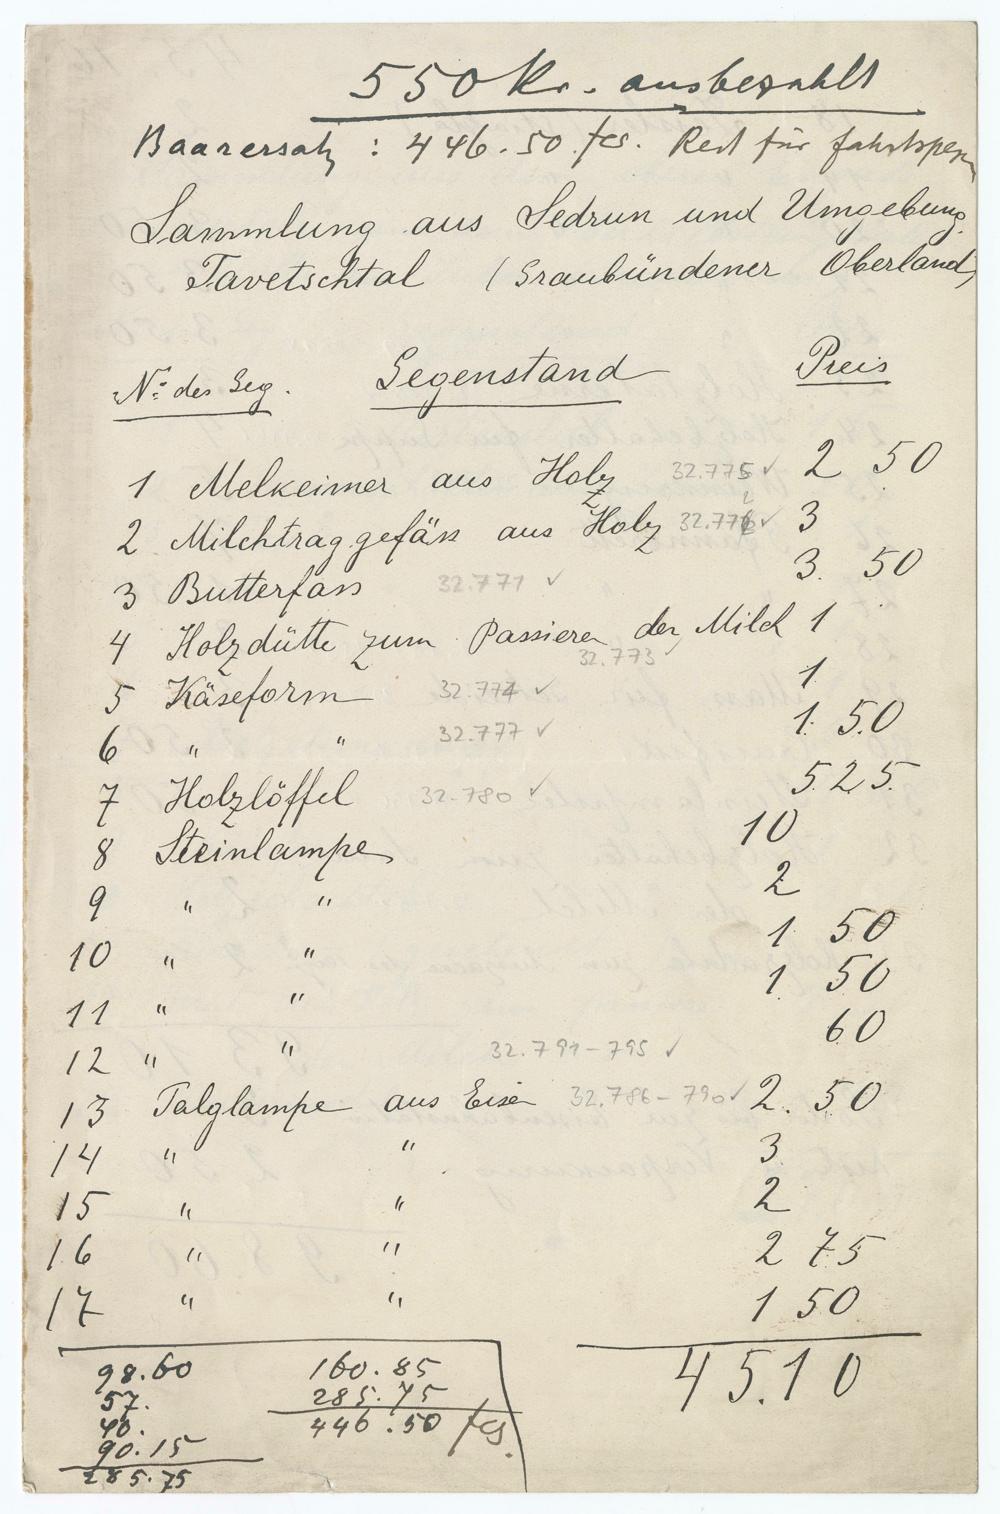 550 Kr. ausbezahlt
Baarersatz : 446.50 fcs. Rest für Fahrtspesen
Sammlung aus Sedrun und Umgebung.
Tavetschtal (Graubündener Oberland)
No. des Geg. Gegenstand Preis
1 Melkeimer aus Holz 32.775 ✓ 2 50
2 Milchtraggefäss aus Holz 32.776 ✓ 3
3 Butterfass 32.771 ✓ 3. 50
4 Holzdütte zum Passieren der Milch 1
32.773
5 Käseform 32.774 ✓ 1.
6 " " 32.777 ✓ 1. 50
7 Holzlöffel 32.780 ✓ 5.25.
8 Steinlampe 10
9 " " 2
10 " " 1. 50
11 " " 1. 50
12 " " 32.791-795 ✓ 60
13 Talglampe aus Eisen 32.786-790 ✓ 2. 50
14 " " 3
15 " " 2
16 " " 2 75
17 " " 1 50
45.10
98.60 160.85
57. 285.75
40. 446.50 fcs.
90.15
285.75